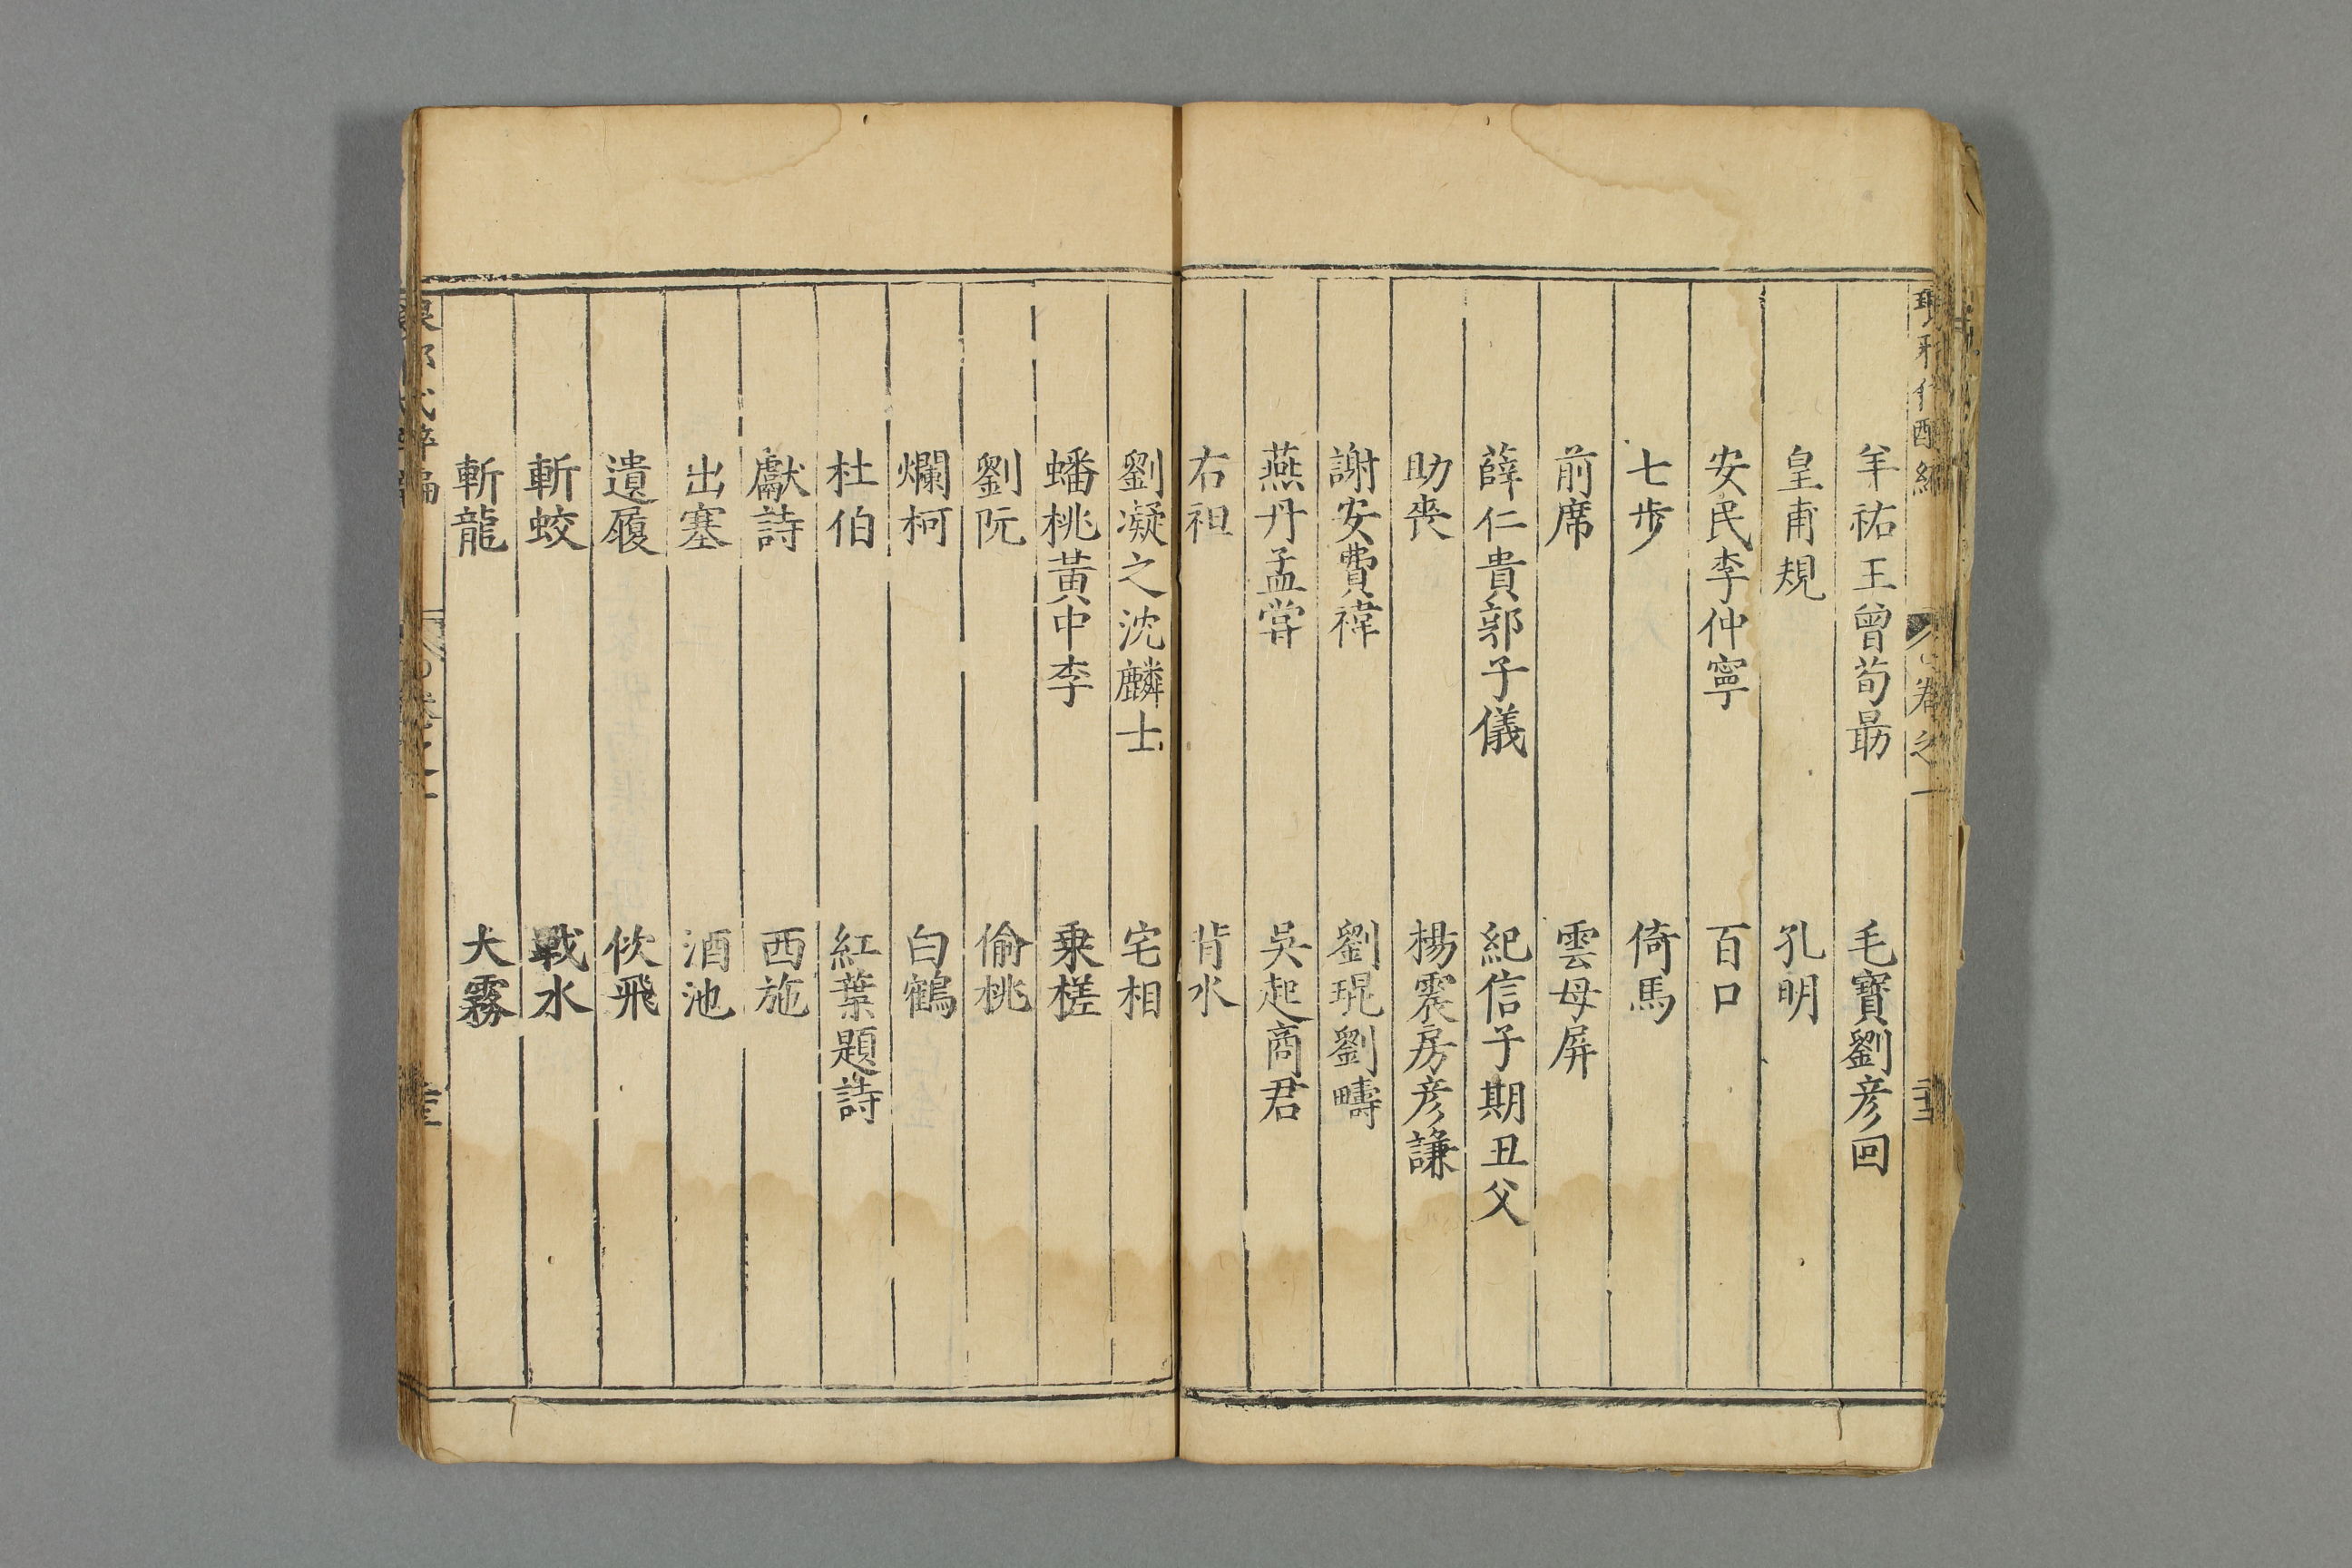 羊祐王曾荀勗　毛寶劉彥回
皇甫規　孔明
安民李仲寧　百口
七步　倚馬
前席　雲母屏
薛仁貴郭子儀　紀信子期丑父
助喪　楊震房彥謙
謝安費禕　劉琨劉疇
燕丹孟嘗　吳起商君
右袒　背水
劉凝之沈麟士　宅相
蟠桃黃中李　乘槎
劉阮　偷桃
爛柯　白鶴
杜伯　紅葉題詩
獻詩　西施
出塞　酒池
遺履　佽飛
斬蛟　戰水
斬龍　大霧